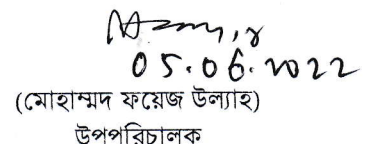 05.06.2022
(মোহাম্মদ ফয়েজ উল্যাহ)
উপপরিচালক